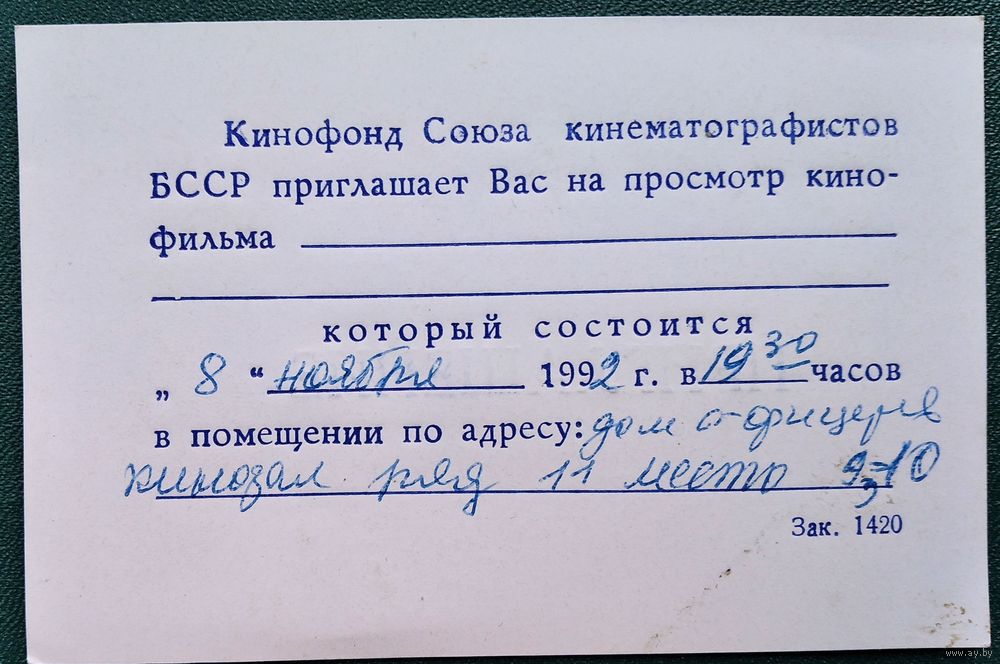 Кинофонд Союза кинематографистов
БССР приглашает Вас на просмотр кино-
фильма
который состоится
„ 8 “ ноября 1992 г. в 19 30 часов
в помещении по адресу: дом офицеров
кинозал ряд 11 место 10
Зак. 1420
www.ay.by